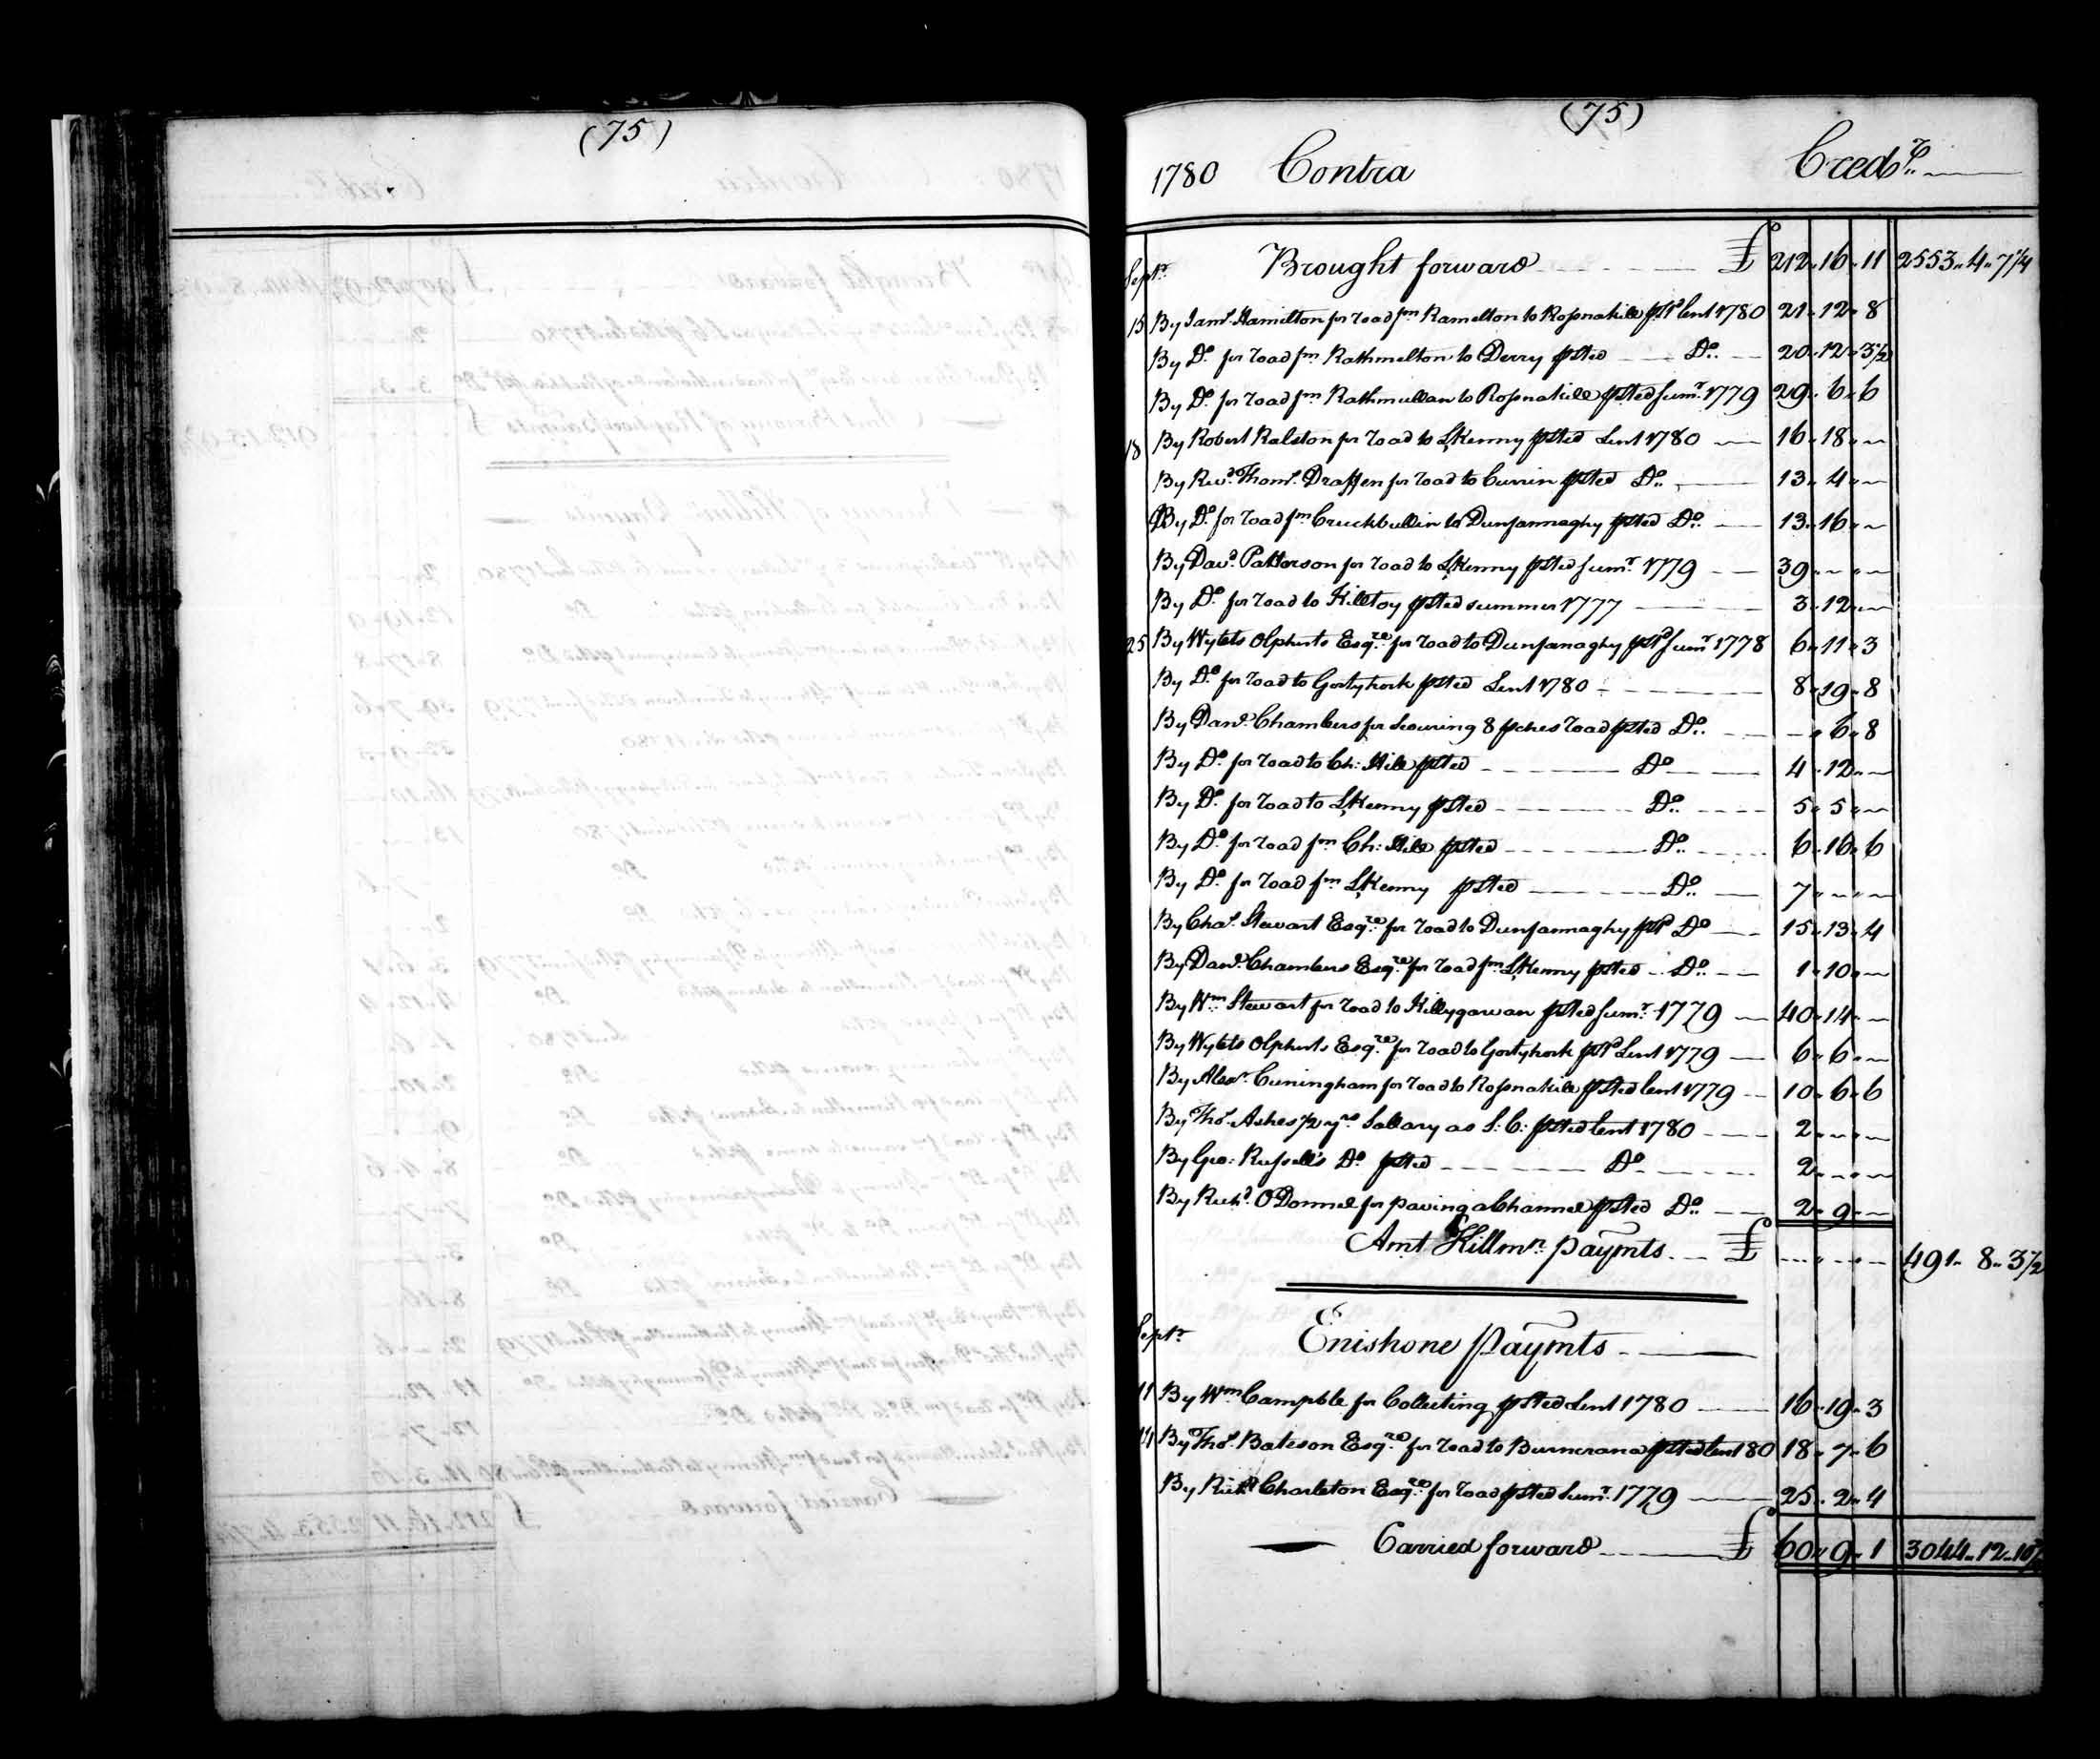 (75)
(75)
1780 Contra Credr.
Septr. Brought forward £ 212 „ 16 „ 11 2553 „ 4 „ 7 1/4
15 By Jams. Hamilton for road fm Ramelton to Rossnakill pstd lent 1780 21 „ 12 „ 8
By Do. for road fm Rathmelton to Derry psted Do. 20 „ 12 „ 3 1/2
By Do. for road fm Rathmullan to Rossnakill psted sumr. 1779 29 „ 6 „ 6
18 By Robert Ralston for road to LKenny psted Lent 1780 16 „ 18 „ —
By Revd. Thoms. Draffen for road to Currin psted Do. 13 „ 4 „ —
By Do. for road fm Cruckbullin to Dunfannaghy psted Do. 13 „ 16 „ —
By Davd. Patterson for road to LKenny psted sumr. 1779 39 „ — „ —
By Do. for road to Killtoy psted summer 1777 3 „ 12 „ —
25 By Wybts Olpherts Esqre. for road to Dunfanaghy pstd sumr 1778 6 „ 11 „ 3
By Do. for road to Gortyhork psted Lent 1780 8 „ 19 „ 8
By Danl. Chambers for scouring 8 pches road psted Do. — „ 6 „ 8
By Do. for road to Ch: Hill psted Do 4 „ 12 „ —
By Do. for road to LKenny psted Do. 5 „ 5 „ —
By Do. for road fm Ch: Hill psted Do. 6 „ 16 „ 6
By Do. for road fm LKenny psted Do. 7 „ — „ —
By Chas. Stewart Esqre. for road to Dunfannaghy pstd Do 15 „ 13 „ 4
By Danl. Chambers Esqre. for road fm LKenny psted Do. 1 „ 10 „ —
By Wm Stewart for road to Killygarvan psted sumr. 1779 40 „ 14 „ —
By Wybts Olpherts Esqre. for road to Gortyhork pstd Lent 1779 6 „ 6 „ —
By Alexr. Cuningham for road to Rossnakill psted lent 1779 10 „ 6 „ 6
By Thos. Ashes 1/2 yrs Sallary as S: C: psted lent 1780 2 „ — „ —
By Geo: Russells Do. psted Do 2 „ — „ —
By Richd. O'Donnel for paving a Channel psted Do. 2 „ 9 „ —
Amt Killmn. paymts £ 491 „ 8 „ 3 1/2
Septr. Enishone Paymts
11 By Wm Campble for Collecting psted Lent 1780 16 „ 19 „ 3
By Thos. Bateson Esqre. for road to Burncrana psted lent 80 18 „ 7 „ 6
By Richd Charleton Esqre. for road psted sumr. 1779 25 „ 2 „ 4
Carried forward £ 60 „ 9 „ 1 3044 „ 12 „ 10